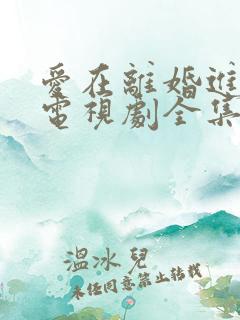 愛在離婚進
電視劇全集
溫冰兒
未經同意禁止轉載